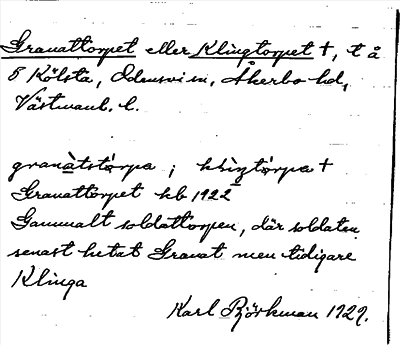 Granattorpet eller Klingtorpet †, t å
8 Kölsta, Odensvi sn, Åkerbo hd,
Västmanl. l.
granàtstórpa ; klìŋtórpa †
Granattorpet hb 1922
Gammalt soldattorpen, där soldaten
senast hetat Granat men tidigare
Klinga
Karl Björkman 1929.